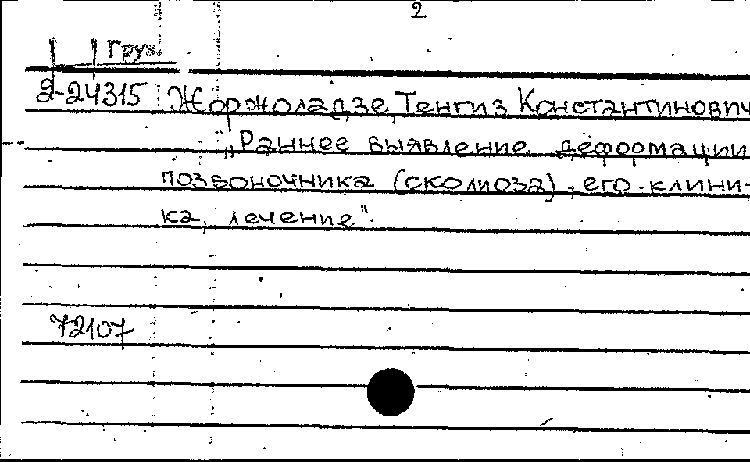 2
Груз.
2-24315 Жоржоладзе Тенгиз Константинович
„Раннее выявление деформации
позвоночника (сколиоза), его клини-
ка, лечение".
72107